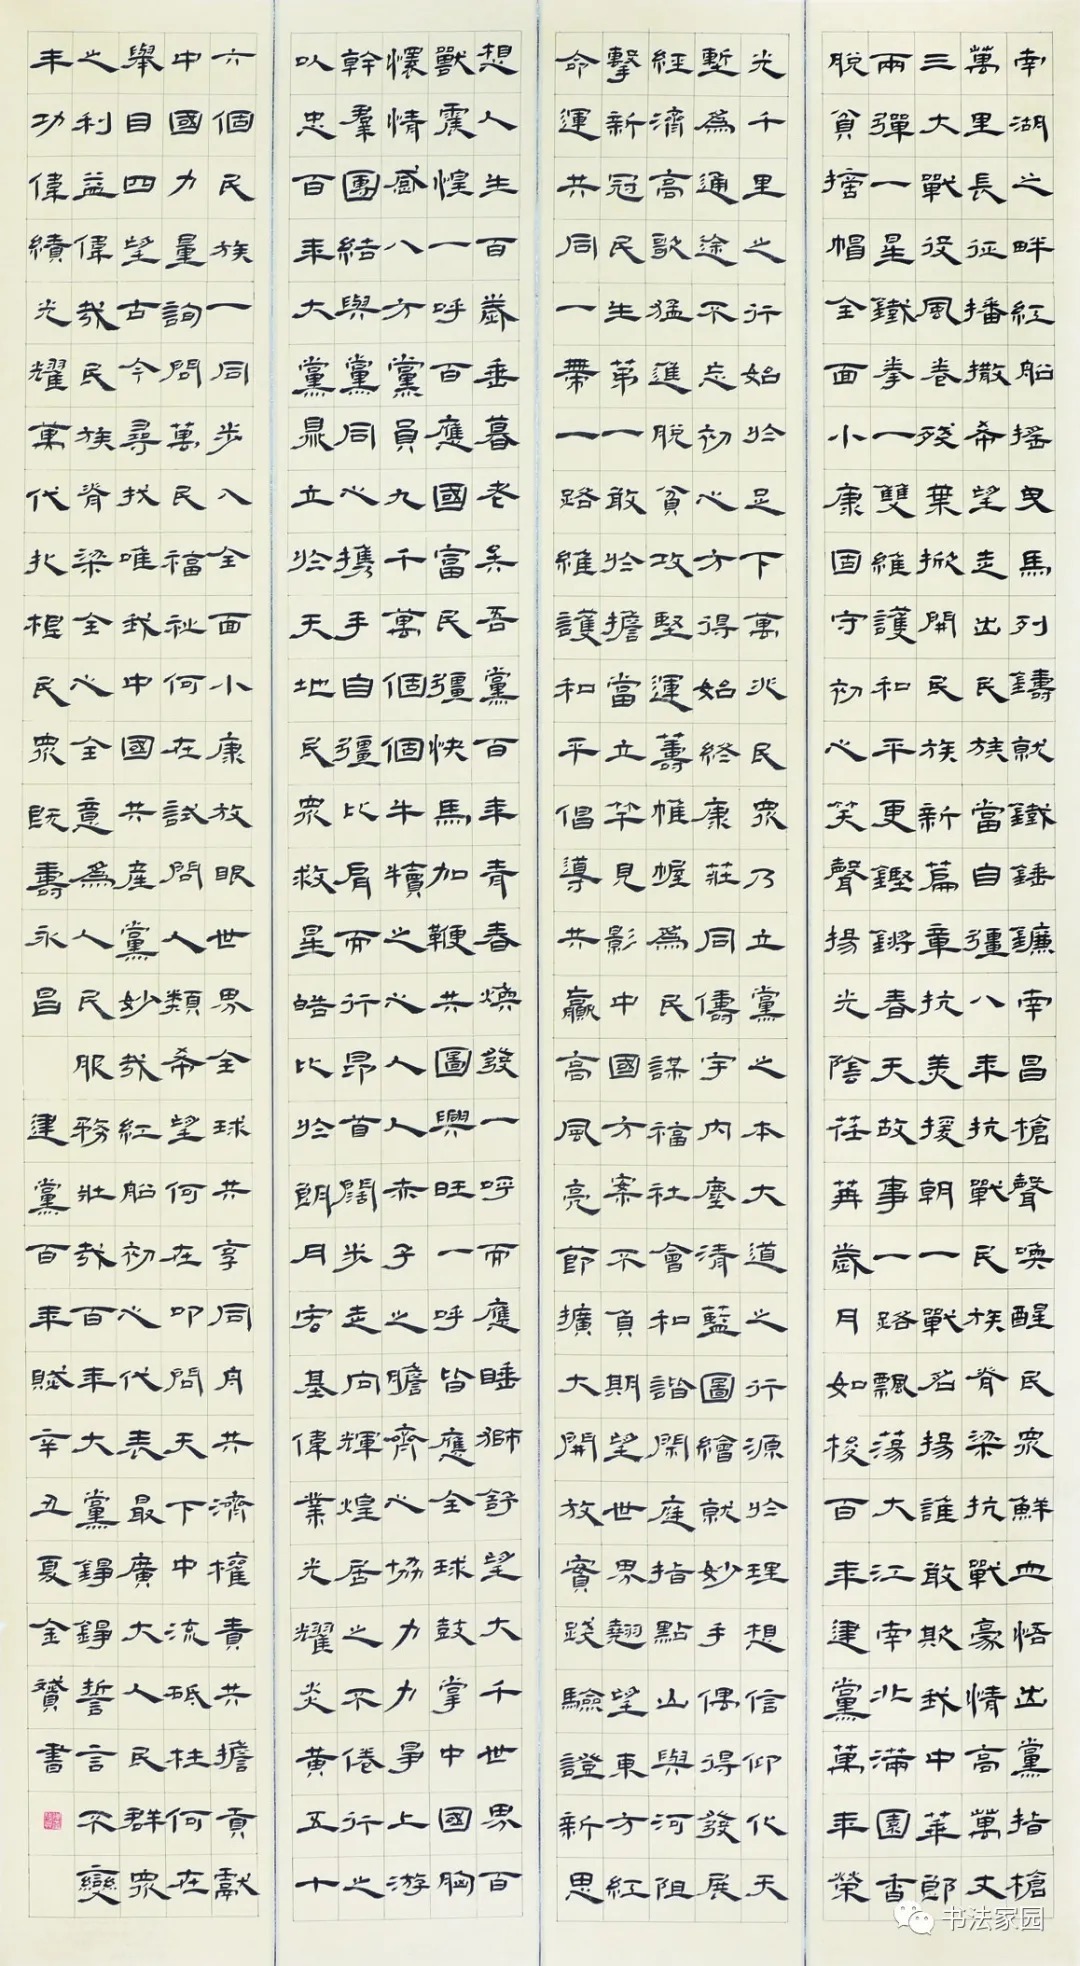 南湖之畔紅船搖曳馬列鑄就鐵錘鐮南昌槍聲喚醒民眾鮮血悟出黨指槍
萬里長征播撒希望走出民族當自彊八年抗戰民族脊梁抗戰豪情高萬丈
三大戰役風卷殘葉掀開民族新篇章抗美援朝一戰名揚誰敢欺我中華郎
兩彈一星鐵拳一雙維護和平更鏗鏘春天故事一路飄蕩大江南北滿園香
脫貧摘帽全面小康固守初心笑聲揚光陰荏苒歲月如梭百年建黨萬年榮
光千里之行始於足下萬兆民眾乃立黨之本大道之行源於理想信仰化天
塹為通途不忘初心方得始終康莊同儔宇內塵清藍圖繪就妙手偶得發展
經濟高歌猛進脫貧攻堅運籌帷幄為民謀福社會和諧閑庭指點山與河阻
擊新冠民生第一敢於擔當立竿見影中國方案不負期望世界翹望東方紅
命運共同一帶一路維護和平倡導共贏高風亮節擴大開放實踐驗證新思
想人生百歲垂暮老吴吾黨百年青春煥發一呼而應睡獅舒望大千世界百
獸震惶一呼百應國富民彊快馬加鞭共圖興旺一呼皆應全球鼓掌中國胸
懷情感八方黨員九千萬個個牛犢之心人人赤子之膽齊心協力力爭上游
幹羣團結與黨同心攜手自彊比肩而行昂首闊步走向輝煌居之不倦行之
以忠百年大黨鼎立於天地民眾救星皓比於朗月宏基偉業光耀炎黃五十
六個民族一同步入全面小康放眼世界全球共享同舟共濟權責共擔貢獻
中國力量詢問萬民福祉何在試問人類希望何在叩問天下中流砥柱何在
舉目四望古今尋找唯我中國共產黨妙哉紅船初心代表最廣大人民群眾
之利益偉哉民族脊梁全心全意為人民服務壯哉百年大黨錚錚誓言不變
年功偉績光耀萬代扎根民眾既壽永昌 建黨百年賦辛丑夏金贇書
书法家园